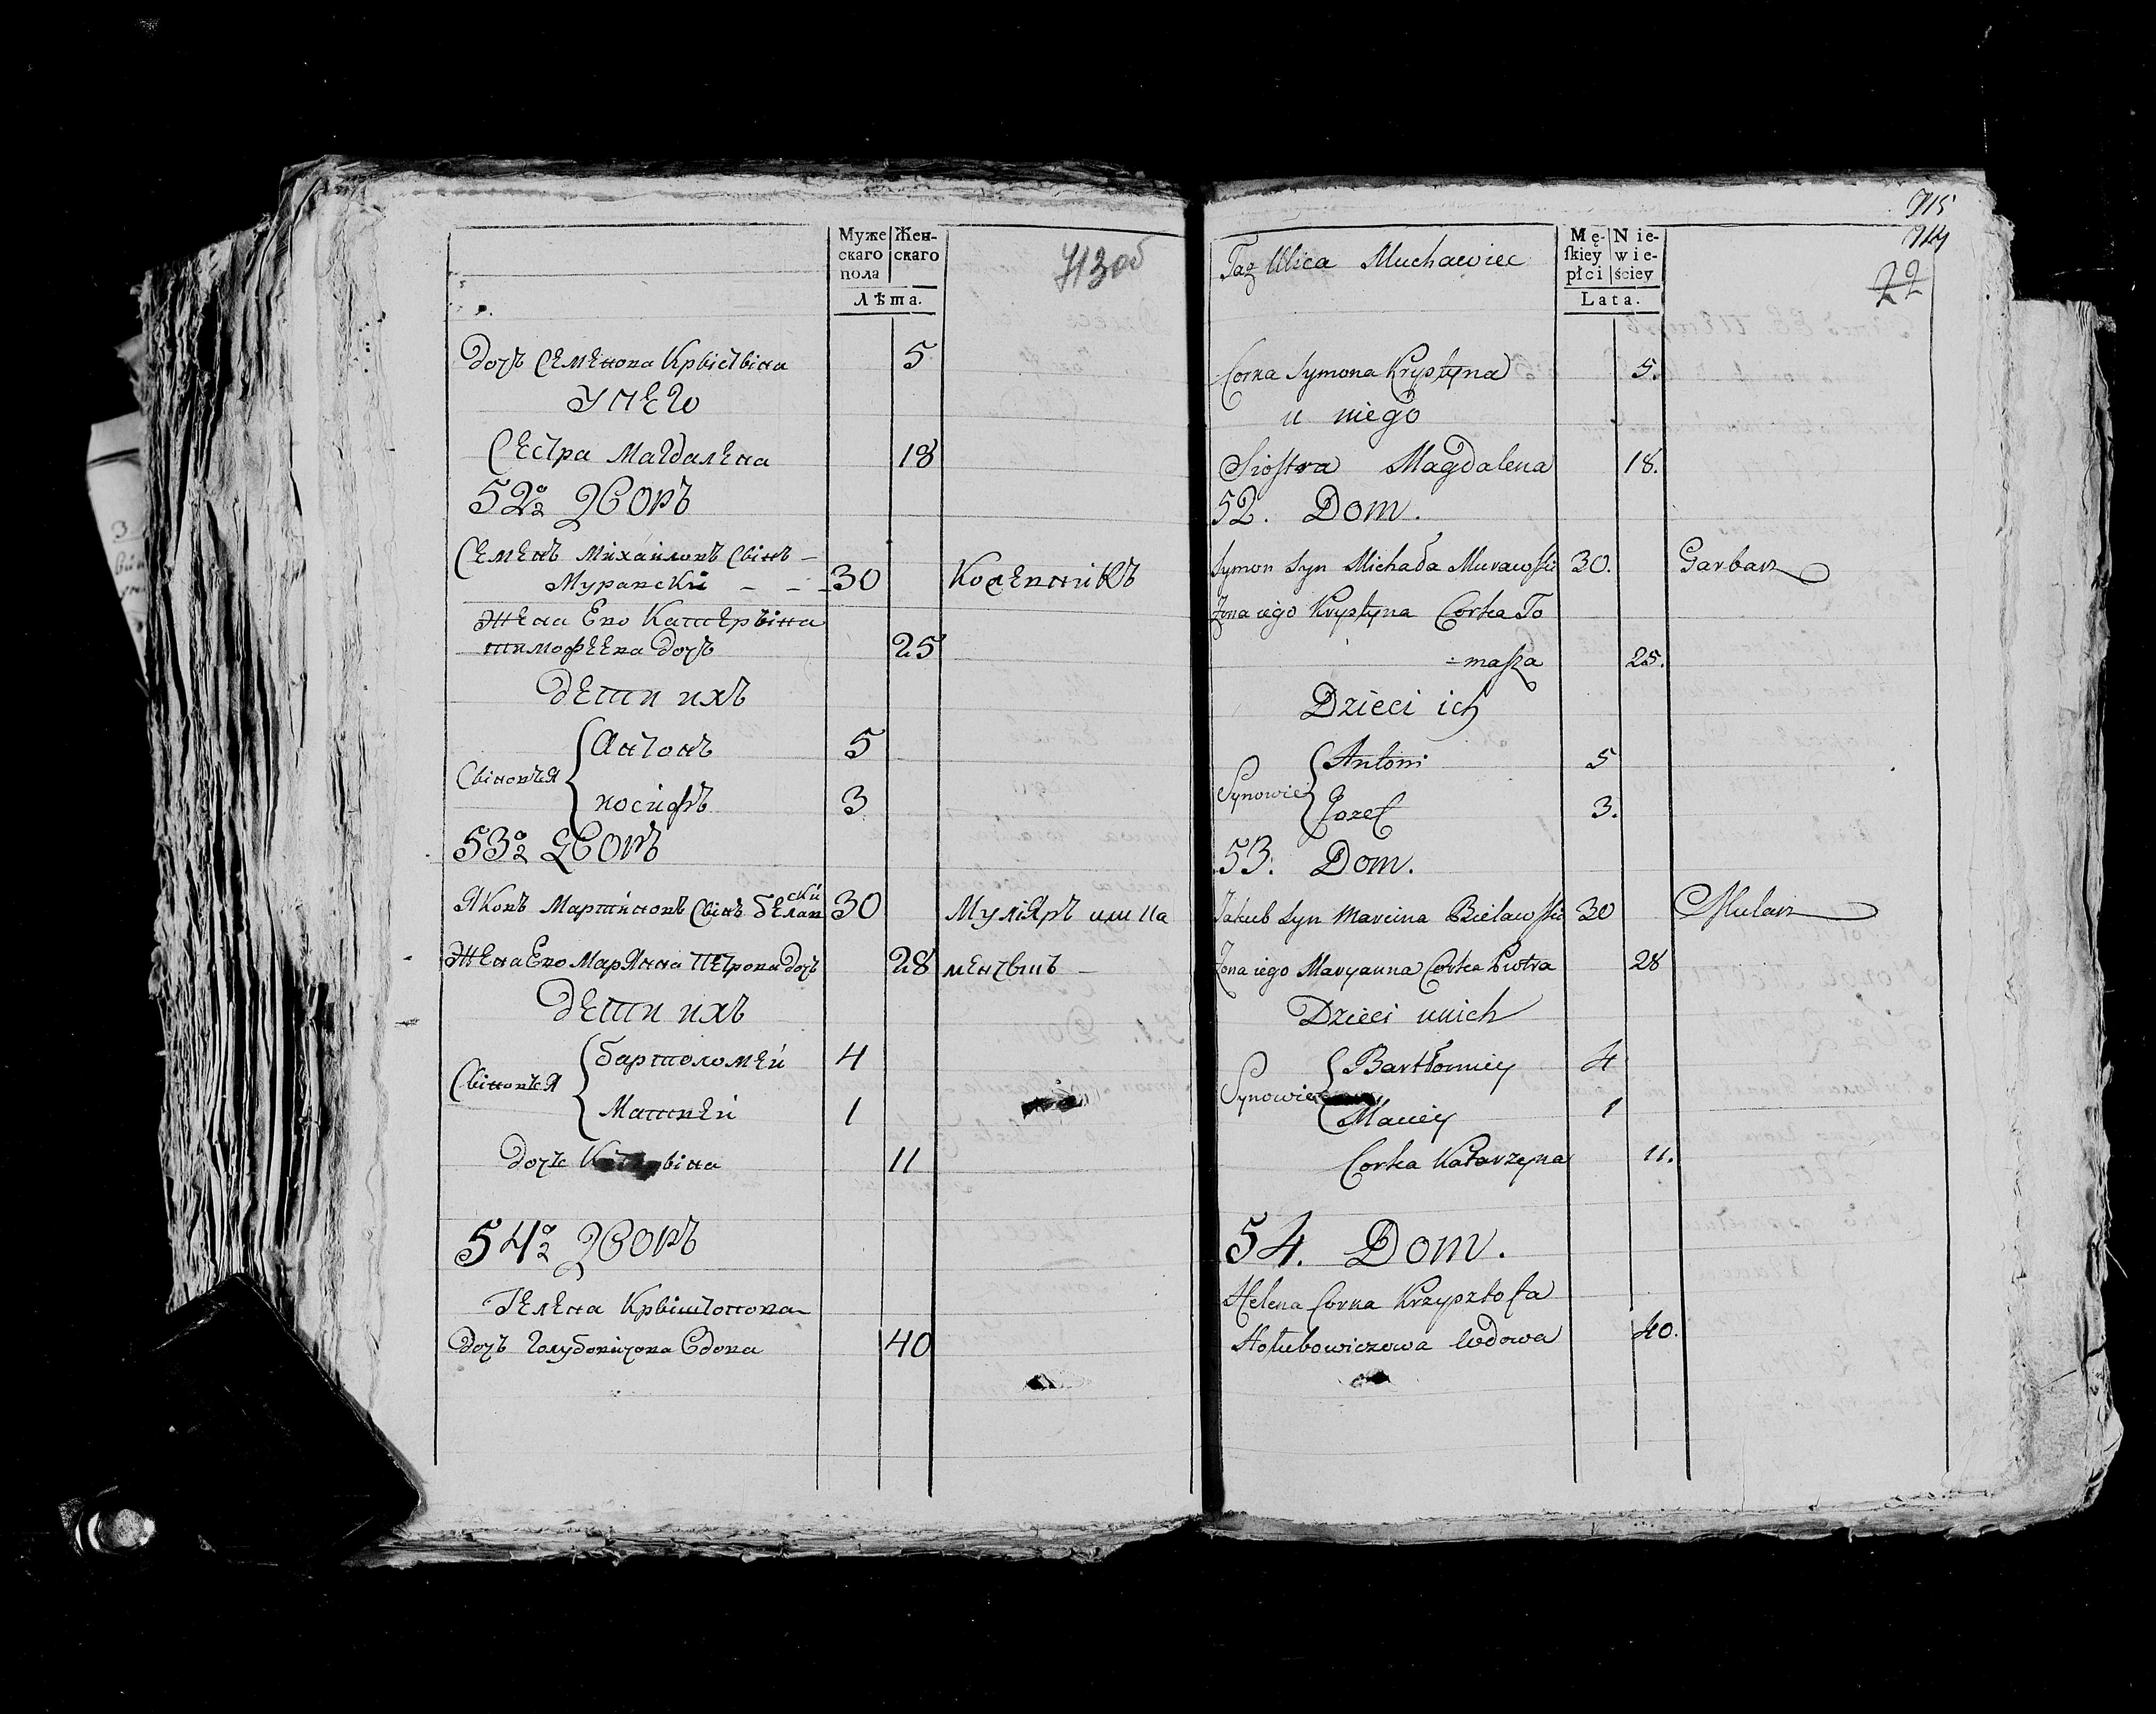 Муже
скаго
пола
Жен-
скаго
Лѣта.
713об
дочь Семенова Крыстына 5
у него
Сестра Магдалена 18
52й дворъ
Семенъ Михайловъ Сынъ —
Муравский — — 30 Кожевникъ
Жена Его Катерына
тимофеева дочь 25
дети ихъ
Сыновья
Антонъ 5
иосифъ 3
53й дворъ
Яковъ Мартиновъ Сынъ белавский 30 Муляръ или Ца
Жена Его Марянна Петрова дочь 28 ментыпъ —
дети ихъ
Сыновья
бартоломей 4
Матвей 1
дочь 11
54й дворъ
Гелена Крыштопова
дочь Голубовичова вдова 40
715
714
22
Taż Ulica Muchawiec
Mę-
ſkiey
płci
Nie-
wie-
ściey
Lata.
Corka Symona Krystyna 5.
u niego
Siostra Magdalena 18.
52. Dom.
Symon Syn Michała Murawſki 30. Garbarz
Zona iego Krystyna Corka To
=maſza 25.
Dzieci ich
Synowie
Antoni 5
Jozef 3.
53. Dom.
Jakub Syn Marcina Bielawſki 30 Mularz
Zona iego Maryanna Corka Piotra 28
Dzieci unich
Synowie
Bartłomiey 4
Maciey 1
Corka Katarzyna 11.
54. Dom.
Helena Corka Krzysztofa
Hołubowiczowa wdowa 40.